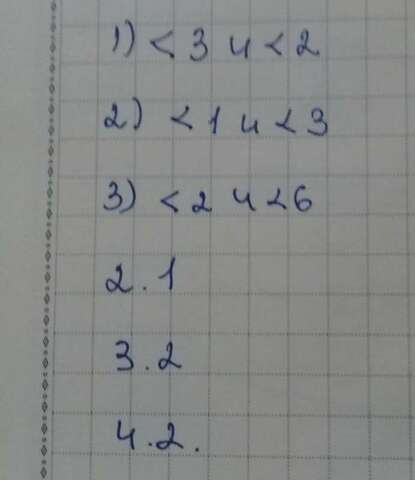 1) < 3 и < 2
2) < 1 и < 3
3) < 2 и < 6
2. 1
3. 2
4. 2.